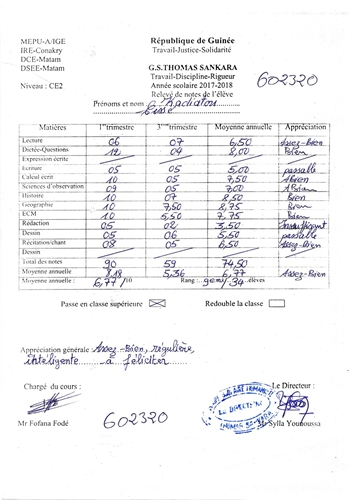 MEPU-A/IGE République de Guinée
IRE-Conakry Travail-Justice-Solidarité
DCE-Matam
DSEE-Matam G.S.THOMAS SANKARA
Travail-Discipline-Rigueur
Niveau : CE2 Année scolaire 2017-2018 602320
Relevé de notes de l'élève
Prénoms et nom : Kadiatou
Cissé
Matières 1ertrimestre 3èmetrimestre Moyenne annuelle Appréciation
Lecture 06 07 6,50 Assez-Bien
Dictée-Questions 12 04 8,00 Bien
Expression écrite
Ecriture 05 05 5,00 passable
Calcul écrit 10 05 7,50 ABien
Sciences d'observation 09 05 7,00 ABien
Histoire 10 07 8,50 Bien
Géographie 10 7,50 8,75 Bien
ECM 10 5,50 7,75 Bien
Rédaction 05 02 3,50 Insuffisant
Dessin 05 06 5,50 passable
Récitation/chant 08 05 6,50 Assez-Bien
Dessin
Total des notes 90 59 74,50
Moyenne annuelle 8,18 5,36 6,77 Assez-Bien
Moyenne annuelle : 6,77/10 Rang : 9em/34 élèves
Passe en classe supérieure Redouble la classe
Appréciation générale : Assez-Bien, régulière,
intelligente à féliciter
Chargé du cours : Le Directeur :
LE DIRECTEUR
THOMAS SANKARA
Mr Fofana Fodé 602320 Mr Sylla Younoussa